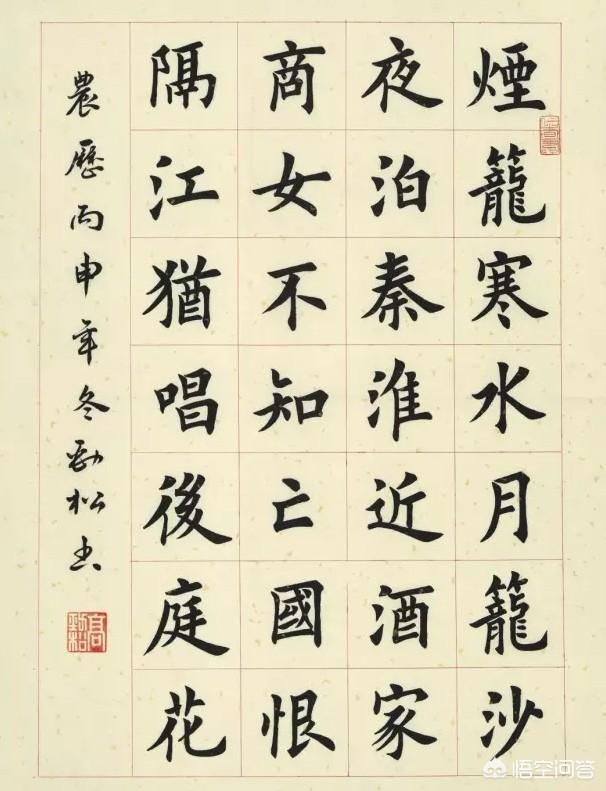 煙籠寒水月籠沙
夜泊秦淮近酒家
商女不知亡國恨
隔江猶唱後庭花
農歷丙申年冬勁松書
高勁松
悟空问答